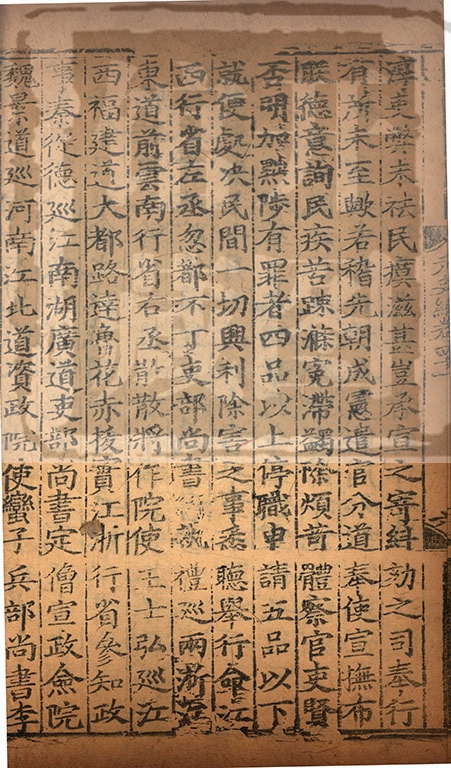 淳吏弊未袪民瘼滋甚豈承宣之寄糾劾之司奉行
有所未至歟若稽先朝成憲遣官分道奉使宣撫布
朕德意詢民疾苦踈滌寃滯蠲除煩苛體察官吏賢
否明加黜陟有罪者四品以上停職申請五品以下
就便處决民間一切興利除害之事悉聽舉行命江
西行省左丞忽都不丁吏部尚書
執禮巡兩浙江
東道前雲南行省右丞散散將作院使王士弘巡江
西福建道大都路達魯花赤拔實江浙行省參知政
事秦從德巡江南湖廣道吏部尚書定僧宣政僉院
魏景道巡河南江北道資政院使蠻子兵部尚書李